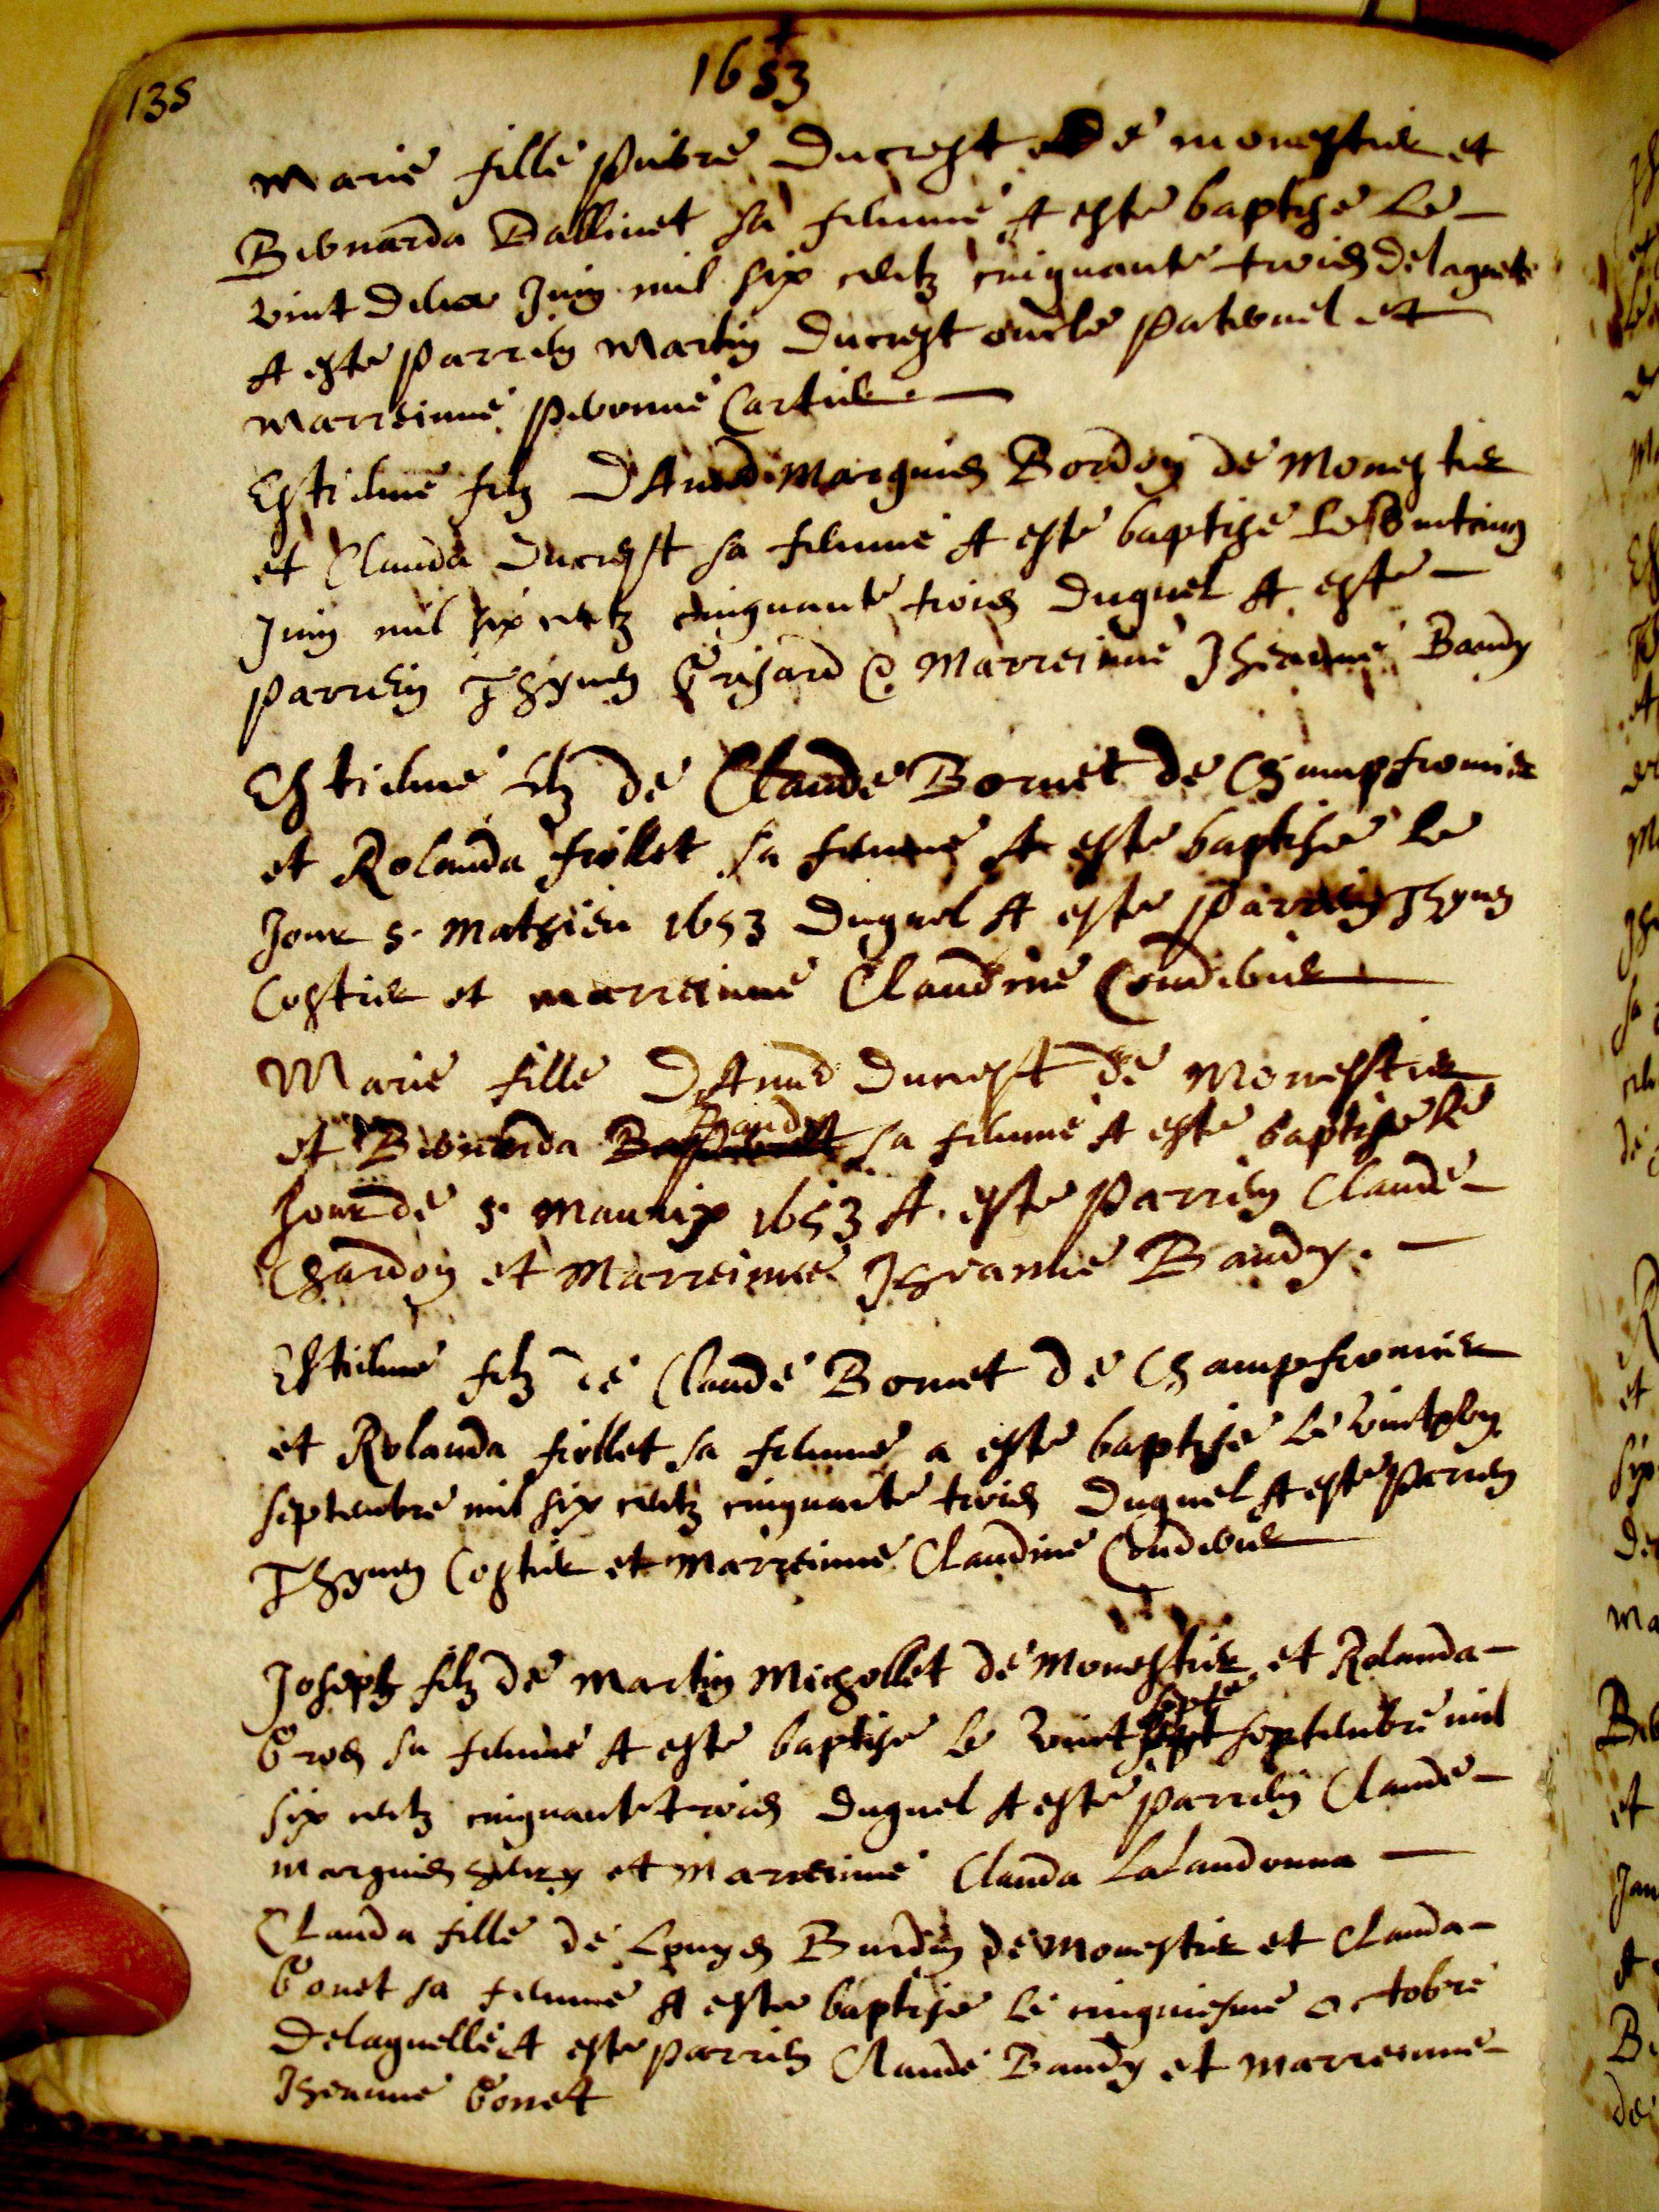 135
1653
Marie fille Pierre Ducrest de monestier et
Bernarda Ballivet sa femme A este baptise le
vint deux Juin mil six centz cinquante trois de laquelle
A este parrein Martin Ducrest oncle paternel et
marreinne Pernonne Cartier
Estienne filz D'Aimé Marquis Bordon de Monestier
et Clauda Ducrest sa femme A este baptise le
Juin mil six centz cinquante trois duquel A este
parrein Thyven Grisard & Marreinne Jheanne Baudy
Estienne filz de Claude Bornet de Champfromier
et Rolanda fiollet sa femme A este baptise le
Jour S. Mathieu 1653 duquel A este parrein Thyven
Costier et marreinne Claudine Coudurier
Marie fille D'Aimé Ducrest de Monestier
et Bernarda Baudy sa femme A este baptise le
Jour de S. Maurix 1653 A este parrein Claude
Chardon et Marreinne Jheanne Baudy.
Estienne filz de Claude Bornet de Champfromier
et Rolanda fiollet sa femme a este baptise le
septembre mil six centz cinquante trois duquel A este parrein
Thyven Costier et Marreinne Claudine Coudurier
Joseph filz de Martin Michollet de Monestier et Rolanda
Gros sa femme A este baptise le vint septe septembre mil
six centz cinquante trois duquel A este parrein Claude
Marquis et Marreinne Clauda LaLandonna
Clauda fille de Louys Burdin de Monestier et Clauda
Gonet sa femme A este baptise le cinquiesme octobre
Delaquelle A este parrein Claude Baudy et marreinne
Jheanne Gonet